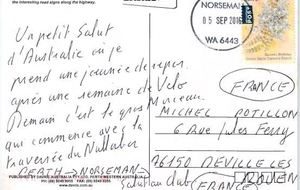 the interesting road signs along the highway.
Un petit Salut
d'Australie où je
prend une journée de repos
après une semaine de Vélo
Demain c'est le gros Morceau
qui commence avec la
traversée du Nullabor
PERTH → NORSEMAN
Salut au club
NORSEMAN
05 SEP 2016
WA 6443
POST
FRANCE
MICHEL POTILLON
6 Rue Jules Ferry
76150 DEVILLE LES
ROUEN
FRANCE